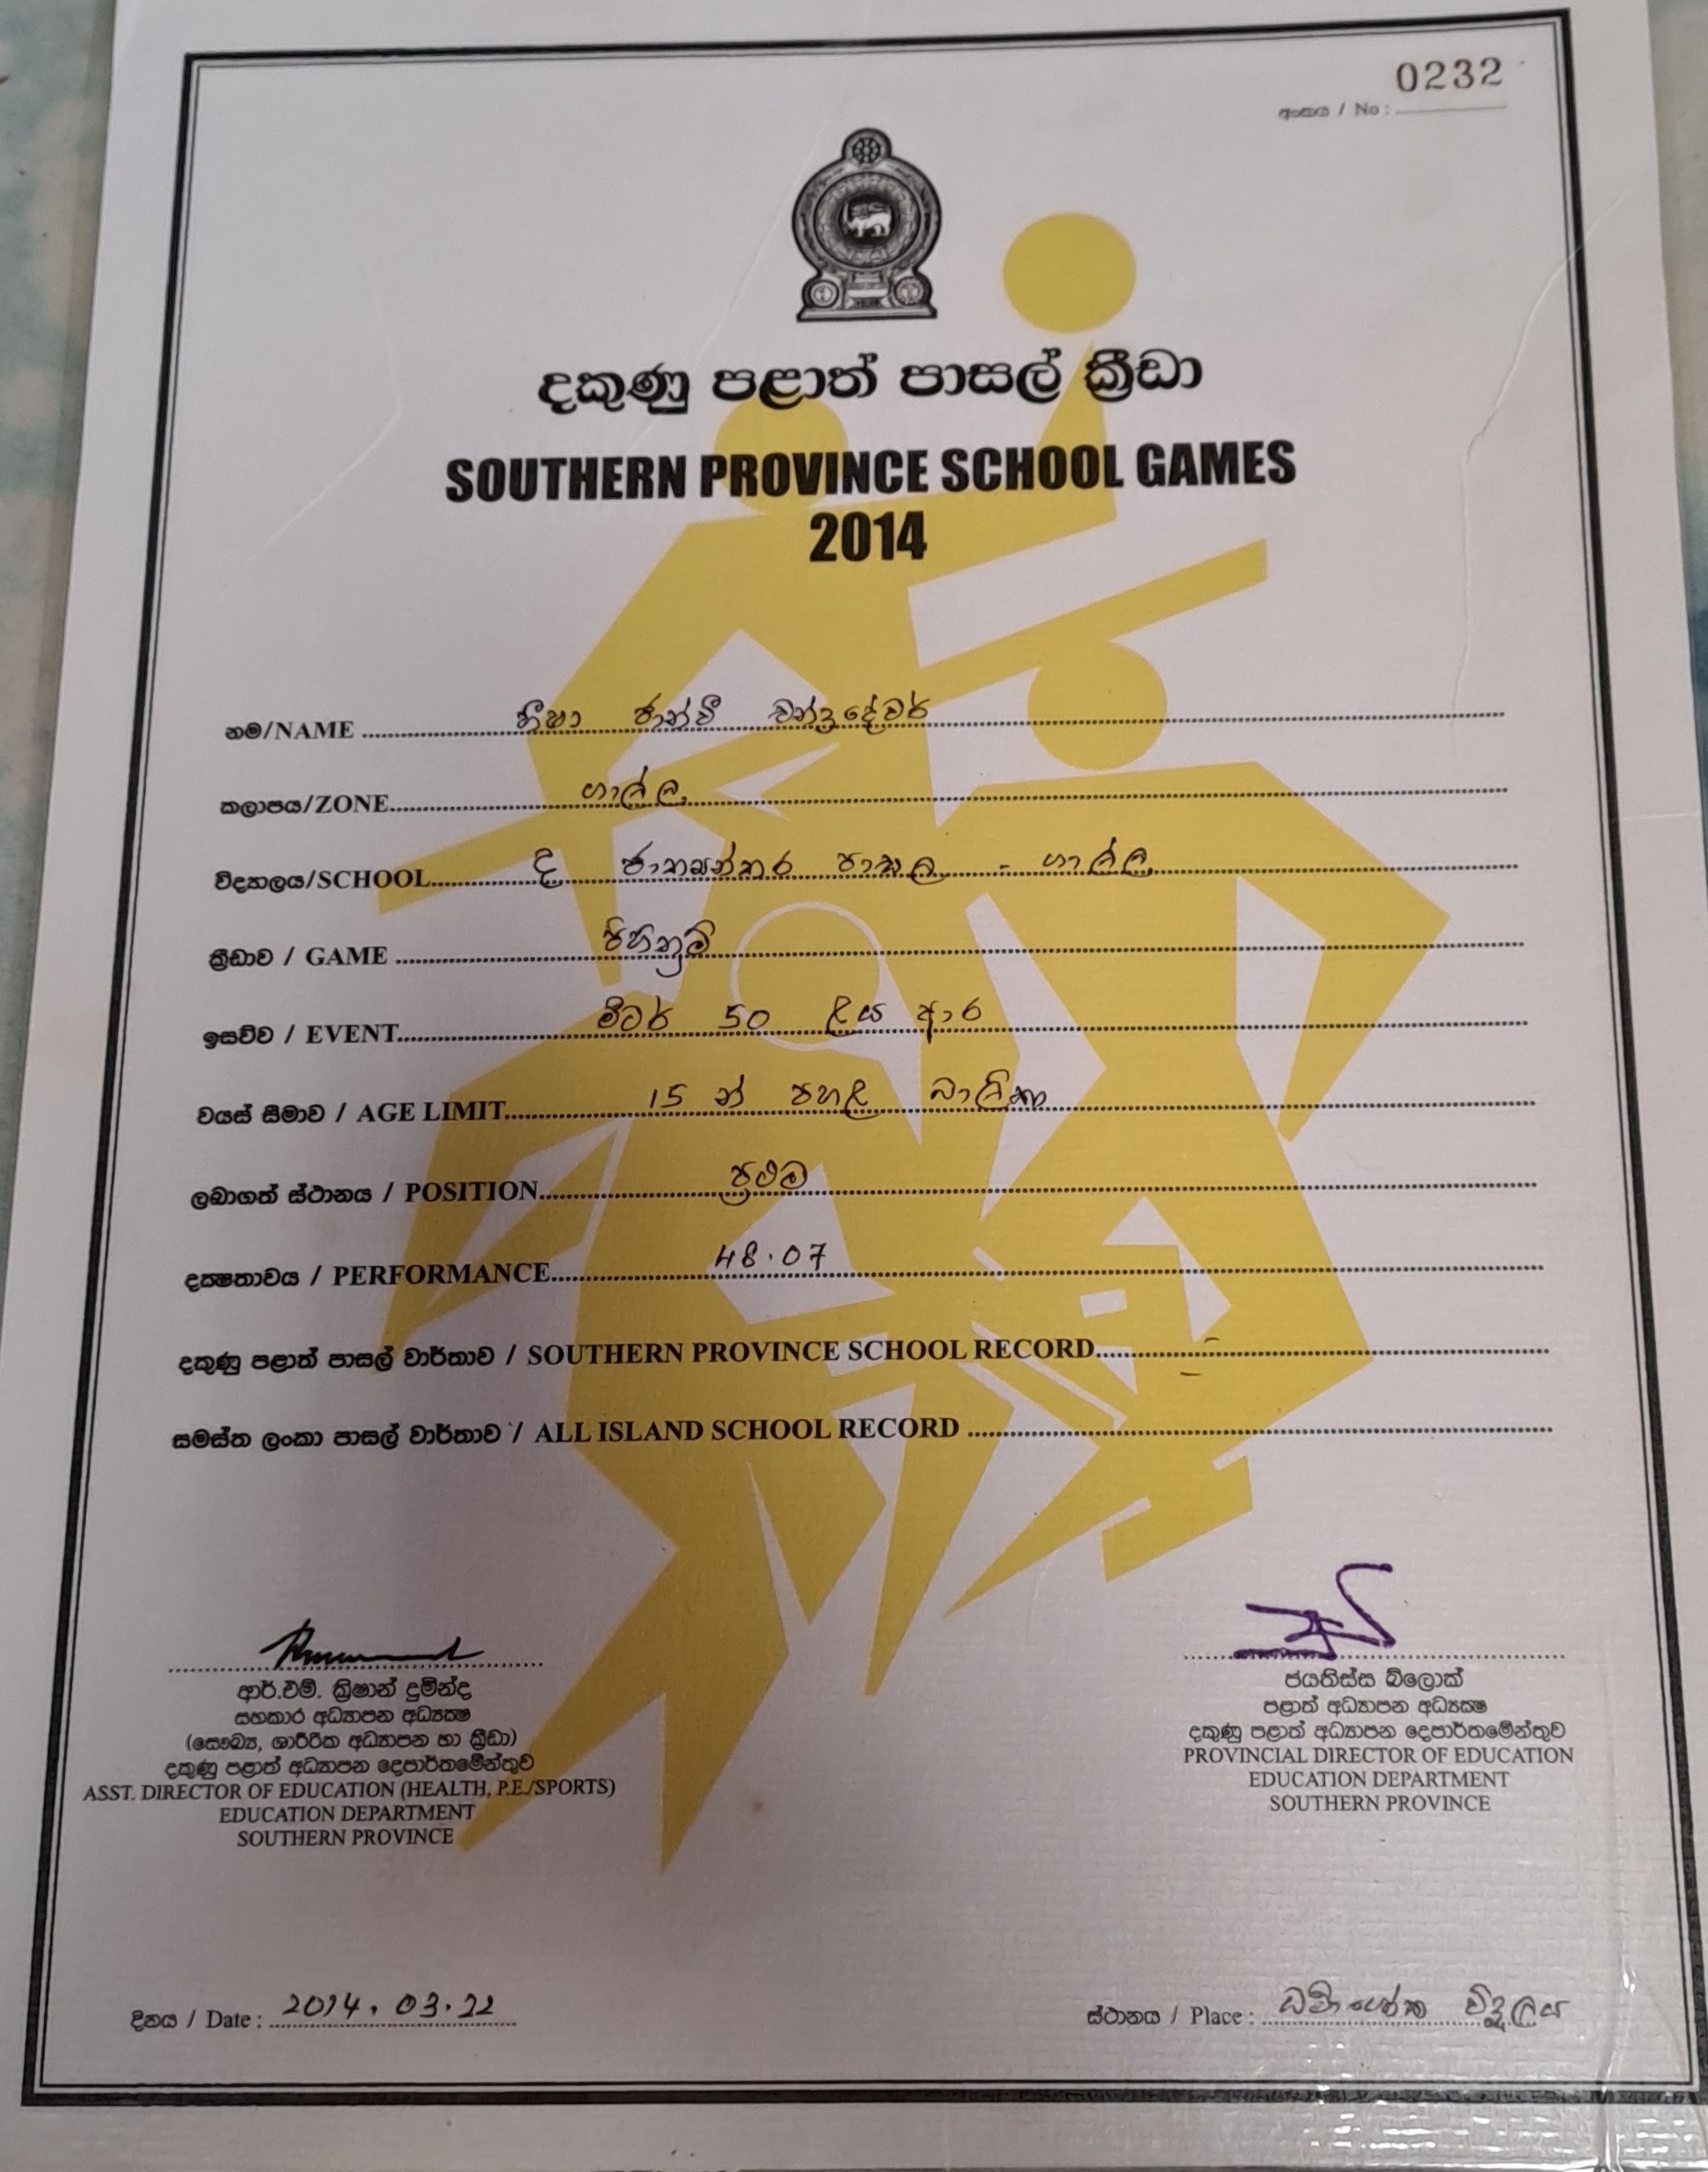 0232
අංකය / No : ....................
දකුණු පළාත් පාසල් ක්‍රීඩා
SOUTHERN PROVINCE SCHOOL GAMES
2014
නම/NAME හීෂා ජාන්වි චන්ද්‍රදේවර්
කලාපය/ZONE ගාල්ල
විද්‍යාලය/SCHOOL ද ජාත්‍යන්තර පාසල - ගාල්ල
ක්‍රීඩාව / GAME පිහිනුම්
ඉසව්ව / EVENT මීටර් 50 ළය ආර
වයස් සීමාව / AGE LIMIT 15 න් පහළ බාලිකා
ලබාගත් ස්ථානය / POSITION ප්‍රථම
දක්ෂතාවය / PERFORMANCE 48.07
දකුණු පළාත් පාසල් වාර්තාව / SOUTHERN PROVINCE SCHOOL RECORD -
සමස්ත ලංකා පාසල් වාර්තාව / ALL ISLAND SCHOOL RECORD
ආර්.එම්. ක්‍රිෂාන් දුමින්ද
සහකාර අධ්‍යාපන අධ්‍යක්ෂ
(සෞඛ්‍ය, ශාරීරික අධ්‍යාපන හා ක්‍රීඩා)
දකුණු පළාත් අධ්‍යාපන දෙපාර්තමේන්තුව
ASST. DIRECTOR OF EDUCATION (HEALTH, P.E./SPORTS)
EDUCATION DEPARTMENT
SOUTHERN PROVINCE
ජයතිස්ස බ්ලොක්
පළාත් අධ්‍යාපන අධ්‍යක්ෂ
දකුණු පළාත් අධ්‍යාපන දෙපාර්තමේන්තුව
PROVINCIAL DIRECTOR OF EDUCATION
EDUCATION DEPARTMENT
SOUTHERN PROVINCE
දිනය / Date : 2014.03.22
ස්ථානය / Place : ධර්මාශෝක විද්‍යාලය